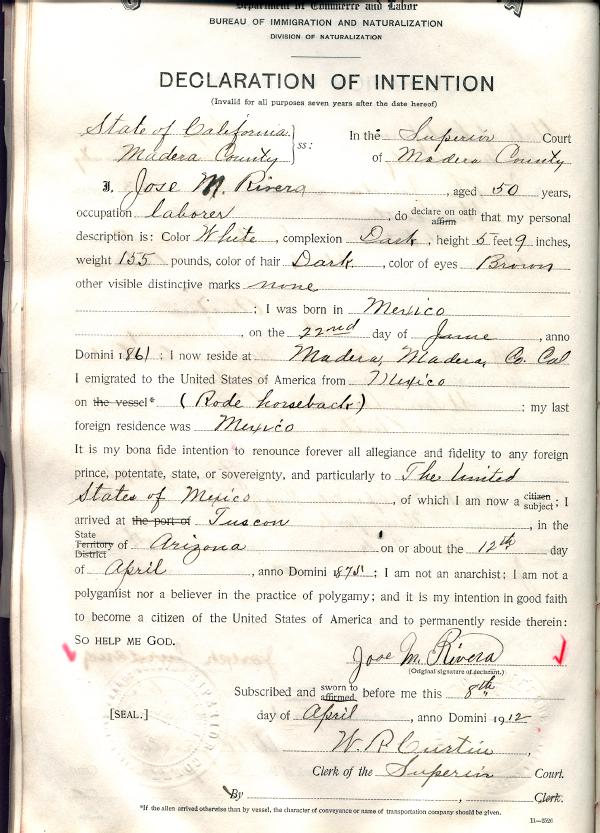 Department of Commerce and Labor
BUREAU OF IMMIGRATION AND NATURALIZATION
DIVISION OF NATURALIZATION
DECLARATION OF INTENTION
(Invalid for all purposes seven years after the date hereof)
State of California } ss: In the Superior Court
Madera County of Madera County
I, Jose M. Rivera, aged 50 years,
occupation laborer, do declare on oath affirm that my personal
description is: Color White, complexion Dark, height 5 feet 9 inches,
weight 155 pounds, color of hair Dark, color of eyes Brown
other visible distinctive marks none
; I was born in Mexico
, on the 22nd day of June, anno
Domini 1861; I now reside at Madera, Madera, Co. Cal
I emigrated to the United States of America from Mexico
on the vessel* (Rode horseback); my last
foreign residence was Mexico
It is my bona fide intention to renounce forever all allegiance and fidelity to any foreign
prince, potentate, state, or sovereignty, and particularly to The United
States of Mexico, of which I am now a citizen subject; I
arrived at the port of Tuscon, in the
State Territory District of Arizona on or about the 12th day
of April, anno Domini 1875; I am not an anarchist; I am not a
polygamist nor a believer in the practice of polygamy; and it is my intention in good faith
to become a citizen of the United States of America and to permanently reside therein:
SO HELP ME GOD.
Jose M. Rivera
(Original signature of declarant.)
Subscribed and sworn to affirmed before me this 8th
[SEAL.] day of April, anno Domini 1912
W. R. Curtin,
Clerk of the Superior Court.
By , Clerk.
*If the alien arrived otherwise than by vessel, the character of conveyance or name of transportation company should be given.
11—2526